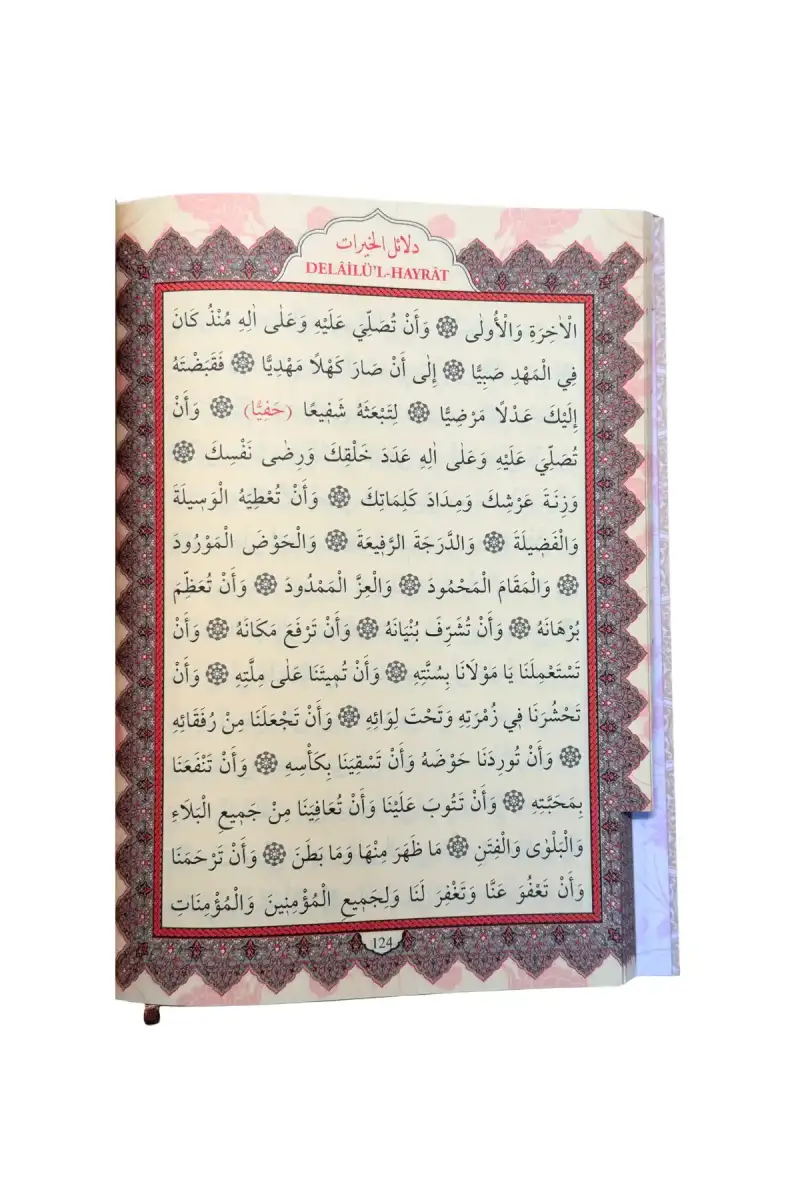 دلائل الخيرات
DELÂİLÜ'L-HAYRÂT
الْاٰخِرَةِ وَالْأُولٰى ۞ وَأَنْ تُصَلِّيَ عَلَيْهِ وَعَلٰى اٰلِهِ مُنْذُ كَانَ
فِي الْمَهْدِ صَبِيًّا ۞ إِلٰى أَنْ صَارَ كَهْلًا مَهْدِيًّا ۞ فَقَبَضْتَهُ
إِلَيْكَ عَدْلًا مَرْضِيًّا ۞ لِتَبْعَثَهُ شَفِيعًا (حَفِيًّا) ۞ وَأَنْ
تُصَلِّيَ عَلَيْهِ وَعَلٰى اٰلِهِ عَدَدَ خَلْقِكَ وَرِضٰى نَفْسِكَ ۞
وَزِنَةَ عَرْشِكَ وَمِدَادَ كَلِمَاتِكَ ۞ وَأَنْ تُعْطِيَهُ الْوَسِيلَةَ
وَالْفَضِيلَةَ ۞ وَالدَّرَجَةَ الرَّفِيعَةَ ۞ وَالْحَوْضَ الْمَوْرُودَ
۞ وَالْمَقَامَ الْمَحْمُودَ ۞ وَالْعِزَّ الْمَمْدُودَ ۞ وَأَنْ تُعَظِّمَ
بُرْهَانَهُ ۞ وَأَنْ تُشَرِّفَ بُنْيَانَهُ ۞ وَأَنْ تَرْفَعَ مَكَانَهُ ۞ وَأَنْ
تَسْتَعْمِلَنَا يَا مَوْلَانَا بِسُنَّتِهِ ۞ وَأَنْ تُمِيتَنَا عَلٰى مِلَّتِهِ ۞ وَأَنْ
تَحْشُرَنَا فِي زُمْرَتِهِ وَتَحْتَ لِوَائِهِ ۞ وَأَنْ تَجْعَلَنَا مِنْ رُفَقَائِهِ
۞ وَأَنْ تُورِدَنَا حَوْضَهُ وَأَنْ تَسْقِيَنَا بِكَأْسِهِ ۞ وَأَنْ تَنْفَعَنَا
بِمَحَبَّتِهِ ۞ وَأَنْ تَتُوبَ عَلَيْنَا وَأَنْ تُعَافِيَنَا مِنْ جَمِيعِ الْبَلَاءِ
وَالْبَلْوٰى وَالْفِتَنِ ۞ مَا ظَهَرَ مِنْهَا وَمَا بَطَنَ ۞ وَأَنْ تَرْحَمَنَا
وَأَنْ تَعْفُوَ عَنَّا وَتَغْفِرَ لَنَا وَلِجَمِيعِ الْمُؤْمِنِينَ وَالْمُؤْمِنَاتِ
124